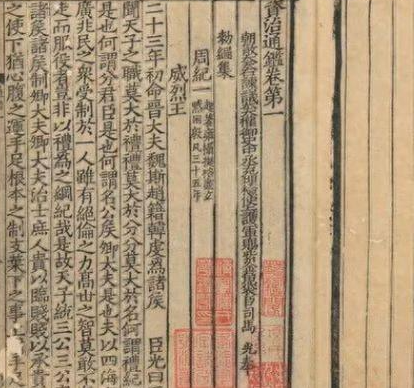 資治通鑑卷第一
朝散大夫右諫議大夫權御史中丞充理檢使上護軍賜紫金魚袋臣司馬 光奉
勑編集
周紀一 起著雍攝提格盡玄黓困敦凡三十五年
威烈王
二十三年初命晉大夫魏斯趙籍韓虔爲諸侯 臣光曰
聞天子之職莫大於禮禮莫大於分分莫大於名何謂禮紀
是也何謂分君臣是也何謂名公侯卿大夫是也夫以四海
廣兆民之衆受制於一人雖有絶倫之力高世之智莫敢不
走而服役者豈非以禮爲之綱紀哉是故天子統三公三公
諸侯諸侯制卿大夫卿大夫治士庶人貴以臨賤賤以承貴
之使下猶心腹之運手足根本之制支葉下之事上手